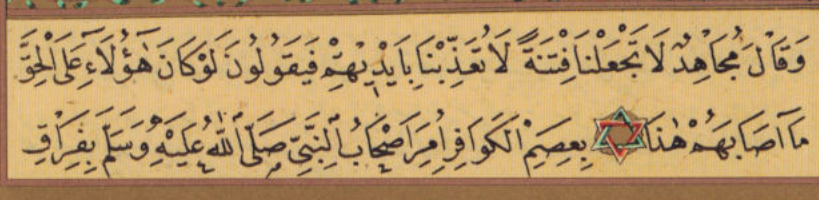 وَقَالَ مُجَاهِدٌ لَا تَجْعَلْنَا فِتْنَةً لَا تُعَذِّبْنَا بِاَيْدِيْهِمْ فَيَقُوْلُوْنَ لَوْكَانَ هٰۤؤُلَاۤءِ عَلَى الْحَقِّ
مَاۤ اَصَابَهُمْ هٰذَا بِعِصَمِ الْكَوَافِرِ اُمِرَ اَصْحَابُ النَّبِيِّ صَلَّى اللّٰهُ عَلَيْهِ وَسَلَّمَ بِفِرَاقِ